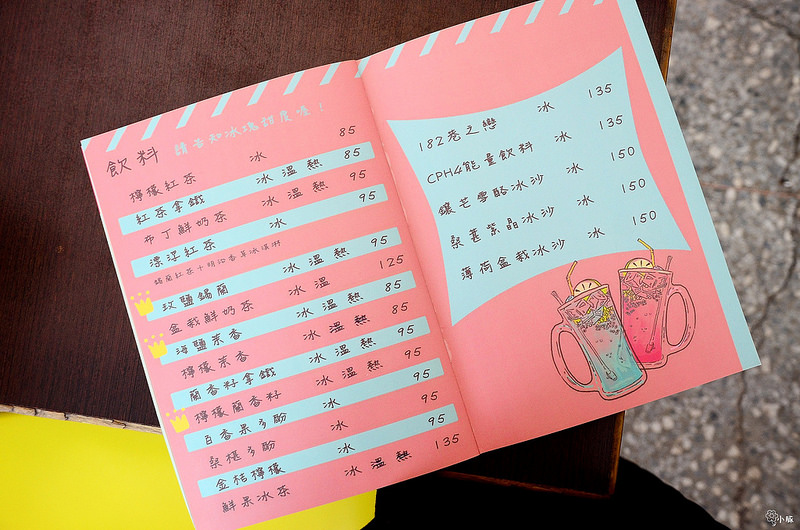 飲料 請告知冰塊甜度喔！
檸檬紅茶 冰 85
紅茶拿鐵 冰溫熱 85
布丁鮮奶茶 冰溫熱 95
漂浮紅茶 冰 95
錫蘭紅茶+明治香草冰淇淋
玫鹽錫蘭 冰溫熱 95
盆栽鮮奶茶 冰溫 125
海鹽茉香 冰溫熱 85
檸檬茉香 冰溫熱 85
蘭香籽拿鐵 冰溫熱 95
檸檬蘭香籽 冰溫熱 95
百香果多酚 冰 95
桑椹多酚 冰 95
金桔檸檬 冰 95
鮮果冰茶 冰溫熱 135
182巷之戀 冰 135
CPH4能量飲料 冰 135
鑲芒雪酪冰沙 冰 150
桑葚紫晶冰沙 冰 150
薄荷盆栽冰沙 冰 150